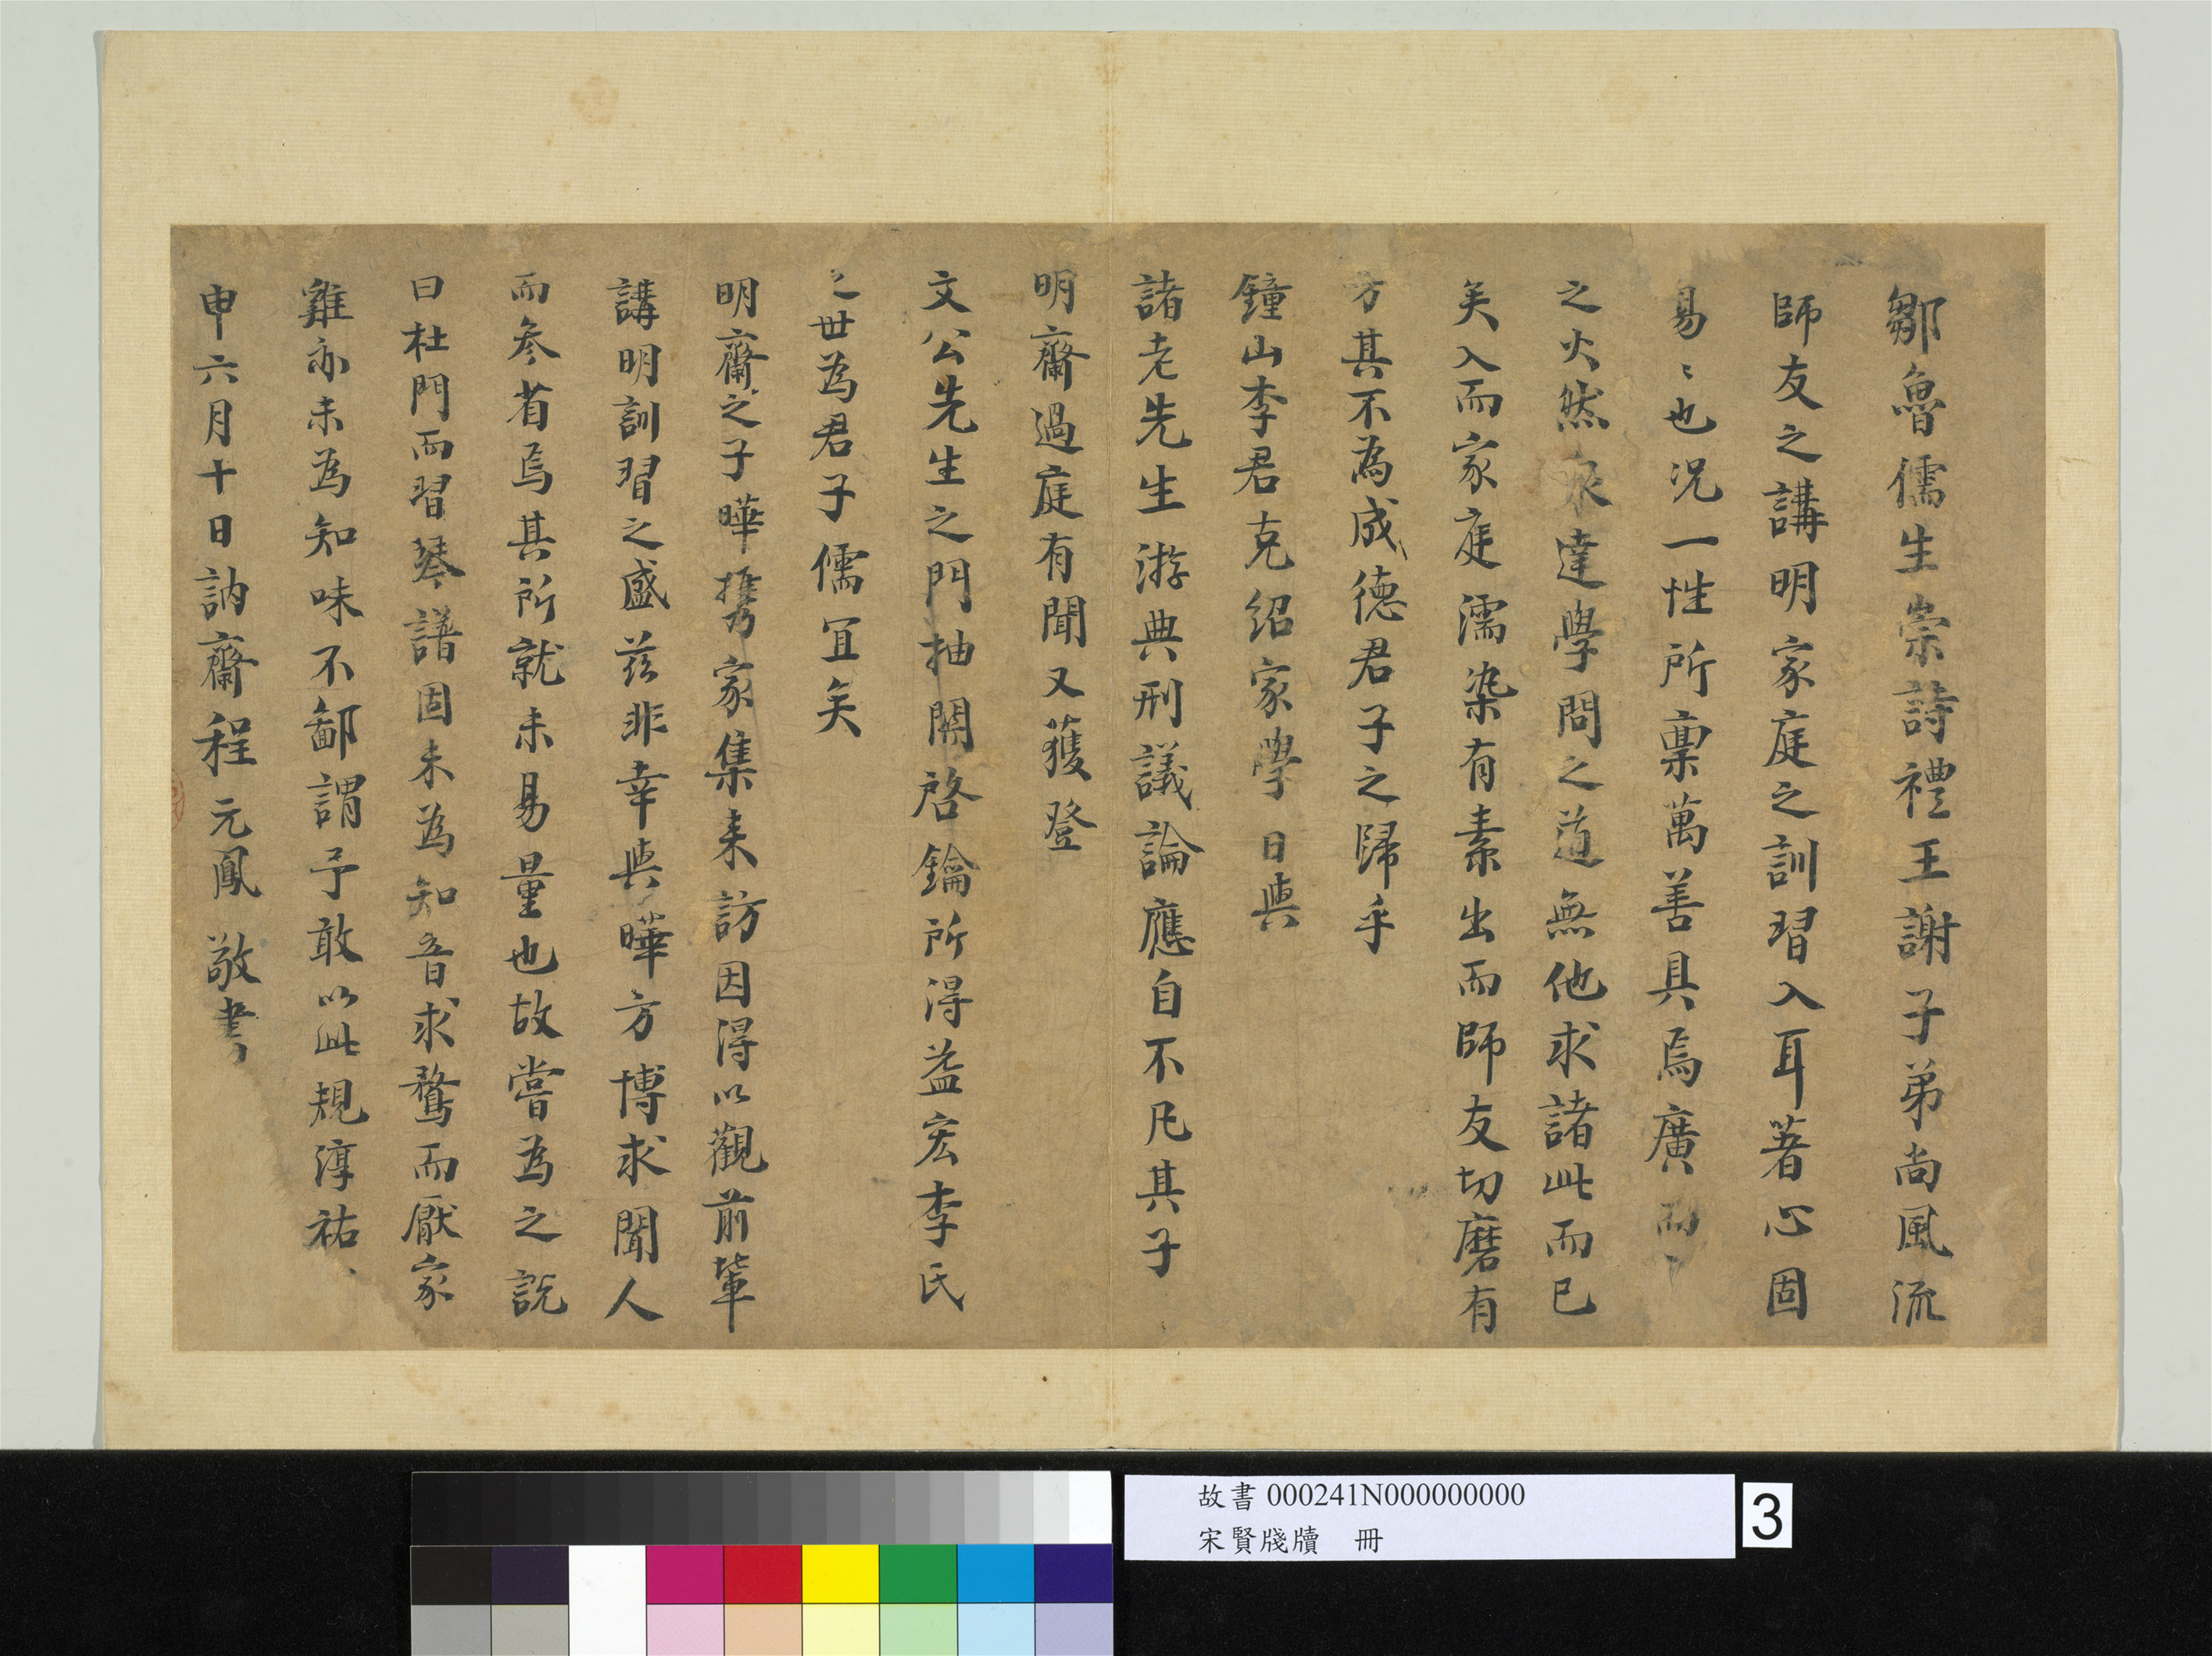 鄒魯儒生崇詩禮王謝子弟尚風流
師友之講明家庭之訓習入耳著心固
易〻也况一性所稟萬善具焉廣而
之火然泉達學問之道無他求諸此而已
矣入而家庭濡染有素出而師友切磨有
方其不為成德君子之歸乎
鐘山李君克紹家學日與
諸老先生游典刑議論應自不凡其子
明齋過庭有聞又獲登
文公先生之門抽關啓鑰所得益宏李氏
之世為君子儒宜矣
明齋之子曄攜家集来訪因得以觀前輩
講明訓習之盛茲非幸與曄方博求聞人
而參省焉其所就未易量也故嘗為之説
曰杜門而習琴譜固未為知音求騖而厭家
雞亦未為知味不鄙謂予敢以此規淳祐
申六月十日訥齋程元鳳敬書
故書 000241N000000000
宋賢牋牘 冊
3